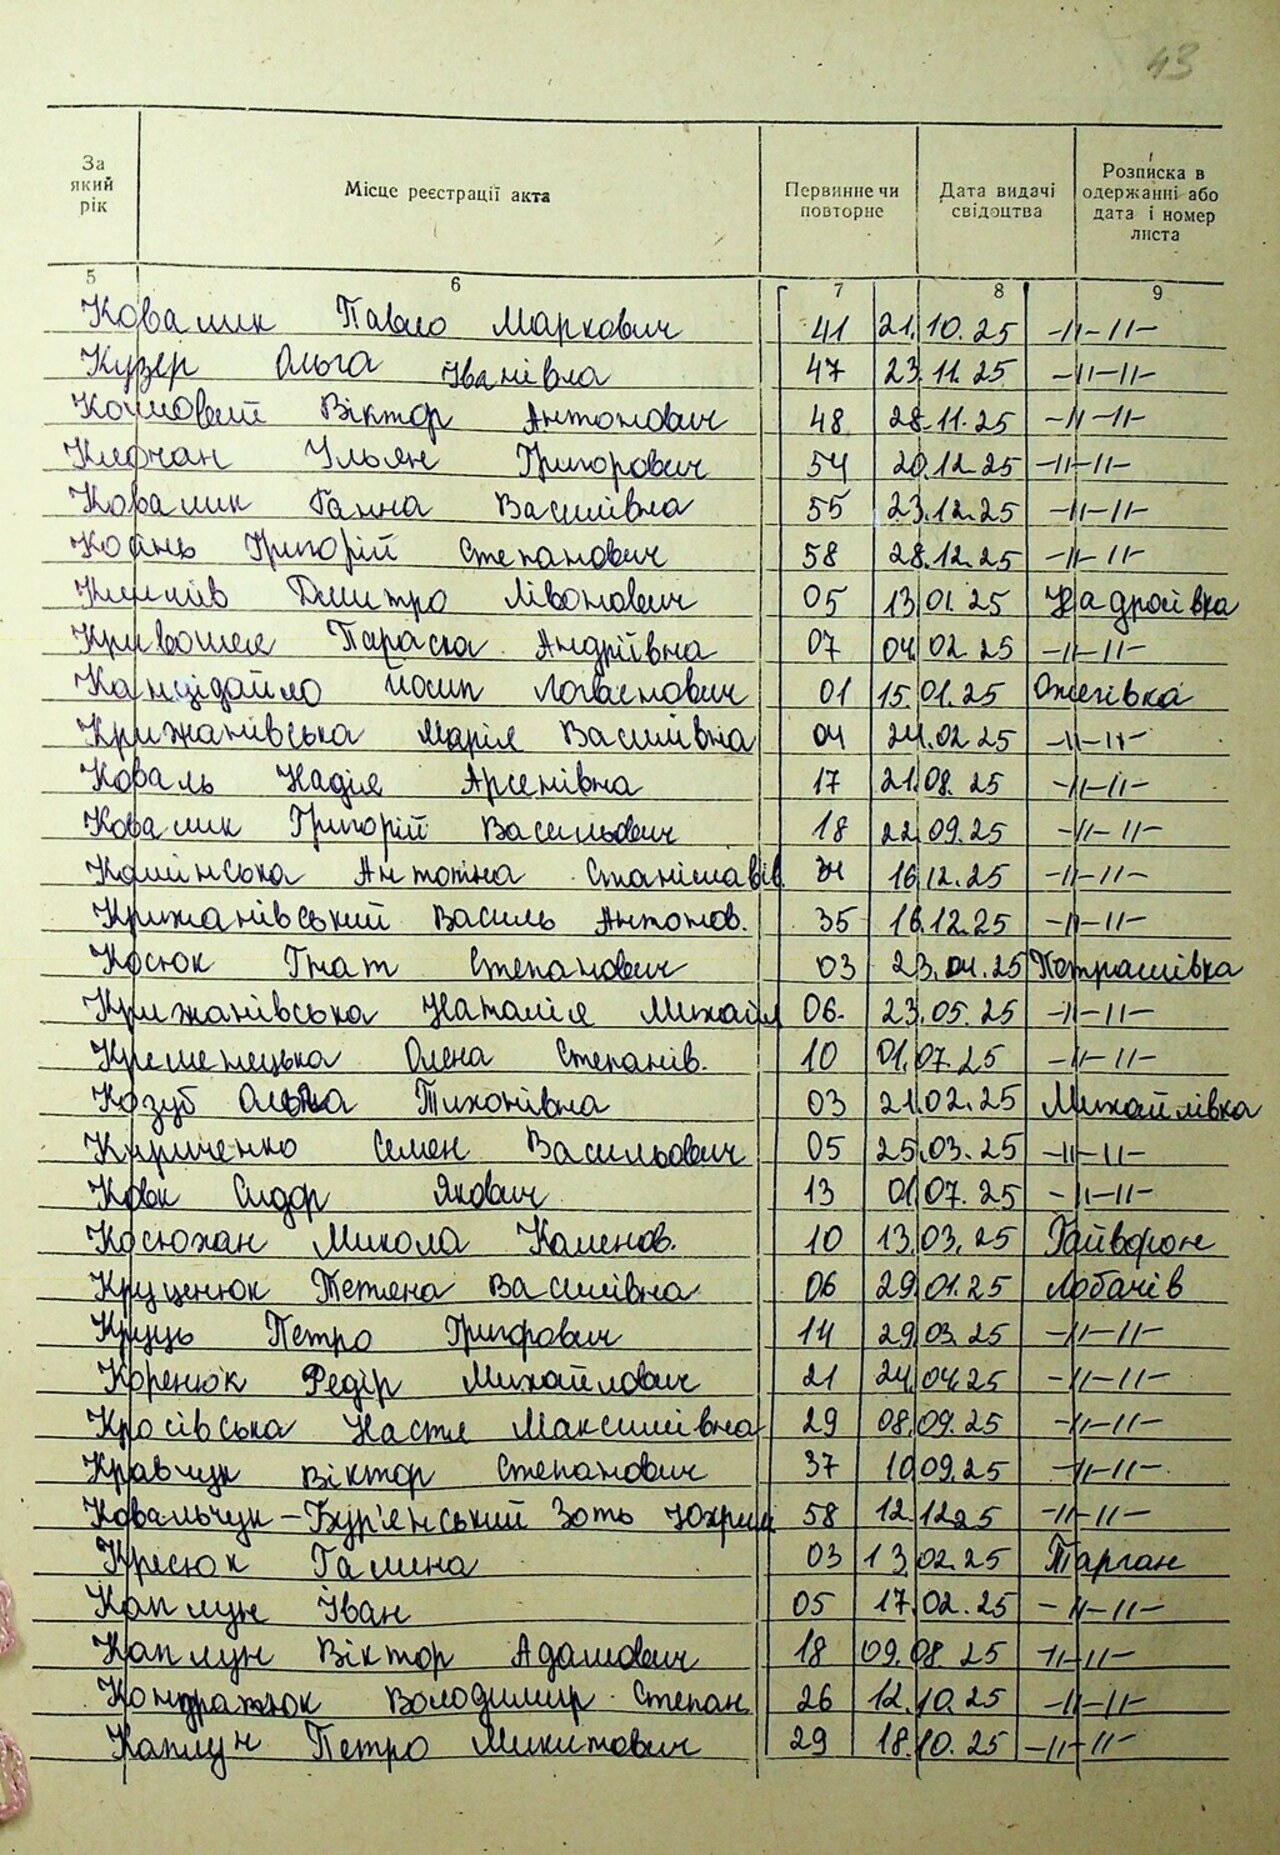 43
За який рік
Місце реєстрації акта
Первинне чи повторне
Дата видачі свідоцтва
Розписка в одержанні або дата і номер листа
5 6 7 8 9
Ковалик Павло Маркович 41 21.10.25 -//-//-
Кузер Ольга Іванівна 47 23.11.25 -//-//-
Кошовий Віктор Антонович 48 28.11.25 -//-//-
Клочан Ульян Григорович 54 20.12.25 -//-//-
Ковалик Ганна Василівна 55 23.12.25 -//-//-
Григорій Степанович 58 28.12.25 -//-//-
Климів Дмитро Лівонович 05 13.01.25 Надроївка
Кривошея Параска Андріївна 07 04.02.25 -//-//-
Канцідайло Йосип 01 15.01.25 Ожегівка
Крижанівська Марія Василівна 04 24.02.25 -//-//-
Коваль Надія Арсенівна 17 21.08.25 -//-//-
Ковалик Григорій Васильович 18 22.09.25 -//-//-
Камінська Антоніна Станіславів. 34 16.12.25 -//-//-
Крижанівський Василь Антонов. 35 16.12.25 -//-//-
Косюк Гнат Степанович 03 23.04.25 Петрашівка
Крижанівська Наталія Михайл 06. 23.05.25 -//-//-
Кременецька Олена Степанів. 10 01.07.25 -//-//-
Козуб Ольга Тихонівна 03 21.02.25 Михайлівка
Кириченко Семен Васильович 05 25.03.25 -//-//-
Ковк Сидор Якович 13 01.07.25 -//-//-
Косюхан Микола Каленов. 10 13.03.25 Гайворон
Круценюк Тетяна Василівна 06 29.01.25 Лобачів
Круць Петро Григорович 14 29.03.25 -//-//-
Коренюк Федір Михайлович 21 24.04.25 -//-//-
Красівська Настя Максимівна 29 08.09.25 -//-//-
Кравчук Віктор Степанович 37 10.09.25 -//-//-
Ковальчук-Бур'янський Зоть Юхрим 58 12.12.25 -//-//-
Кресюк Галина 03 13.02.25 Тарган
Каплун Іван 05 17.02.25 -//-//-
Каплун Віктор Адамович 18 09.08.25 -//-//-
Кондратюк Володимир Степан 26 12.10.25 -//-//-
Каплун Петро Микитович 29 18.10.25 -//-//-